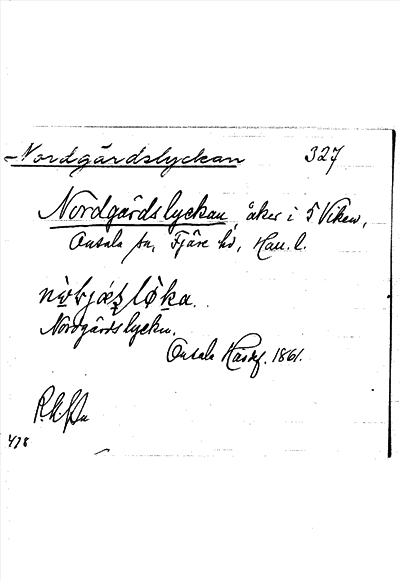 -Nordgårdslyckan 327
Nordgårdslyckan, åker i 5 Viken,
Onsala sn, Fjäre hd, Hall. l.
Nordgårdslyckn.
Onsala Haskf. 1861.
478